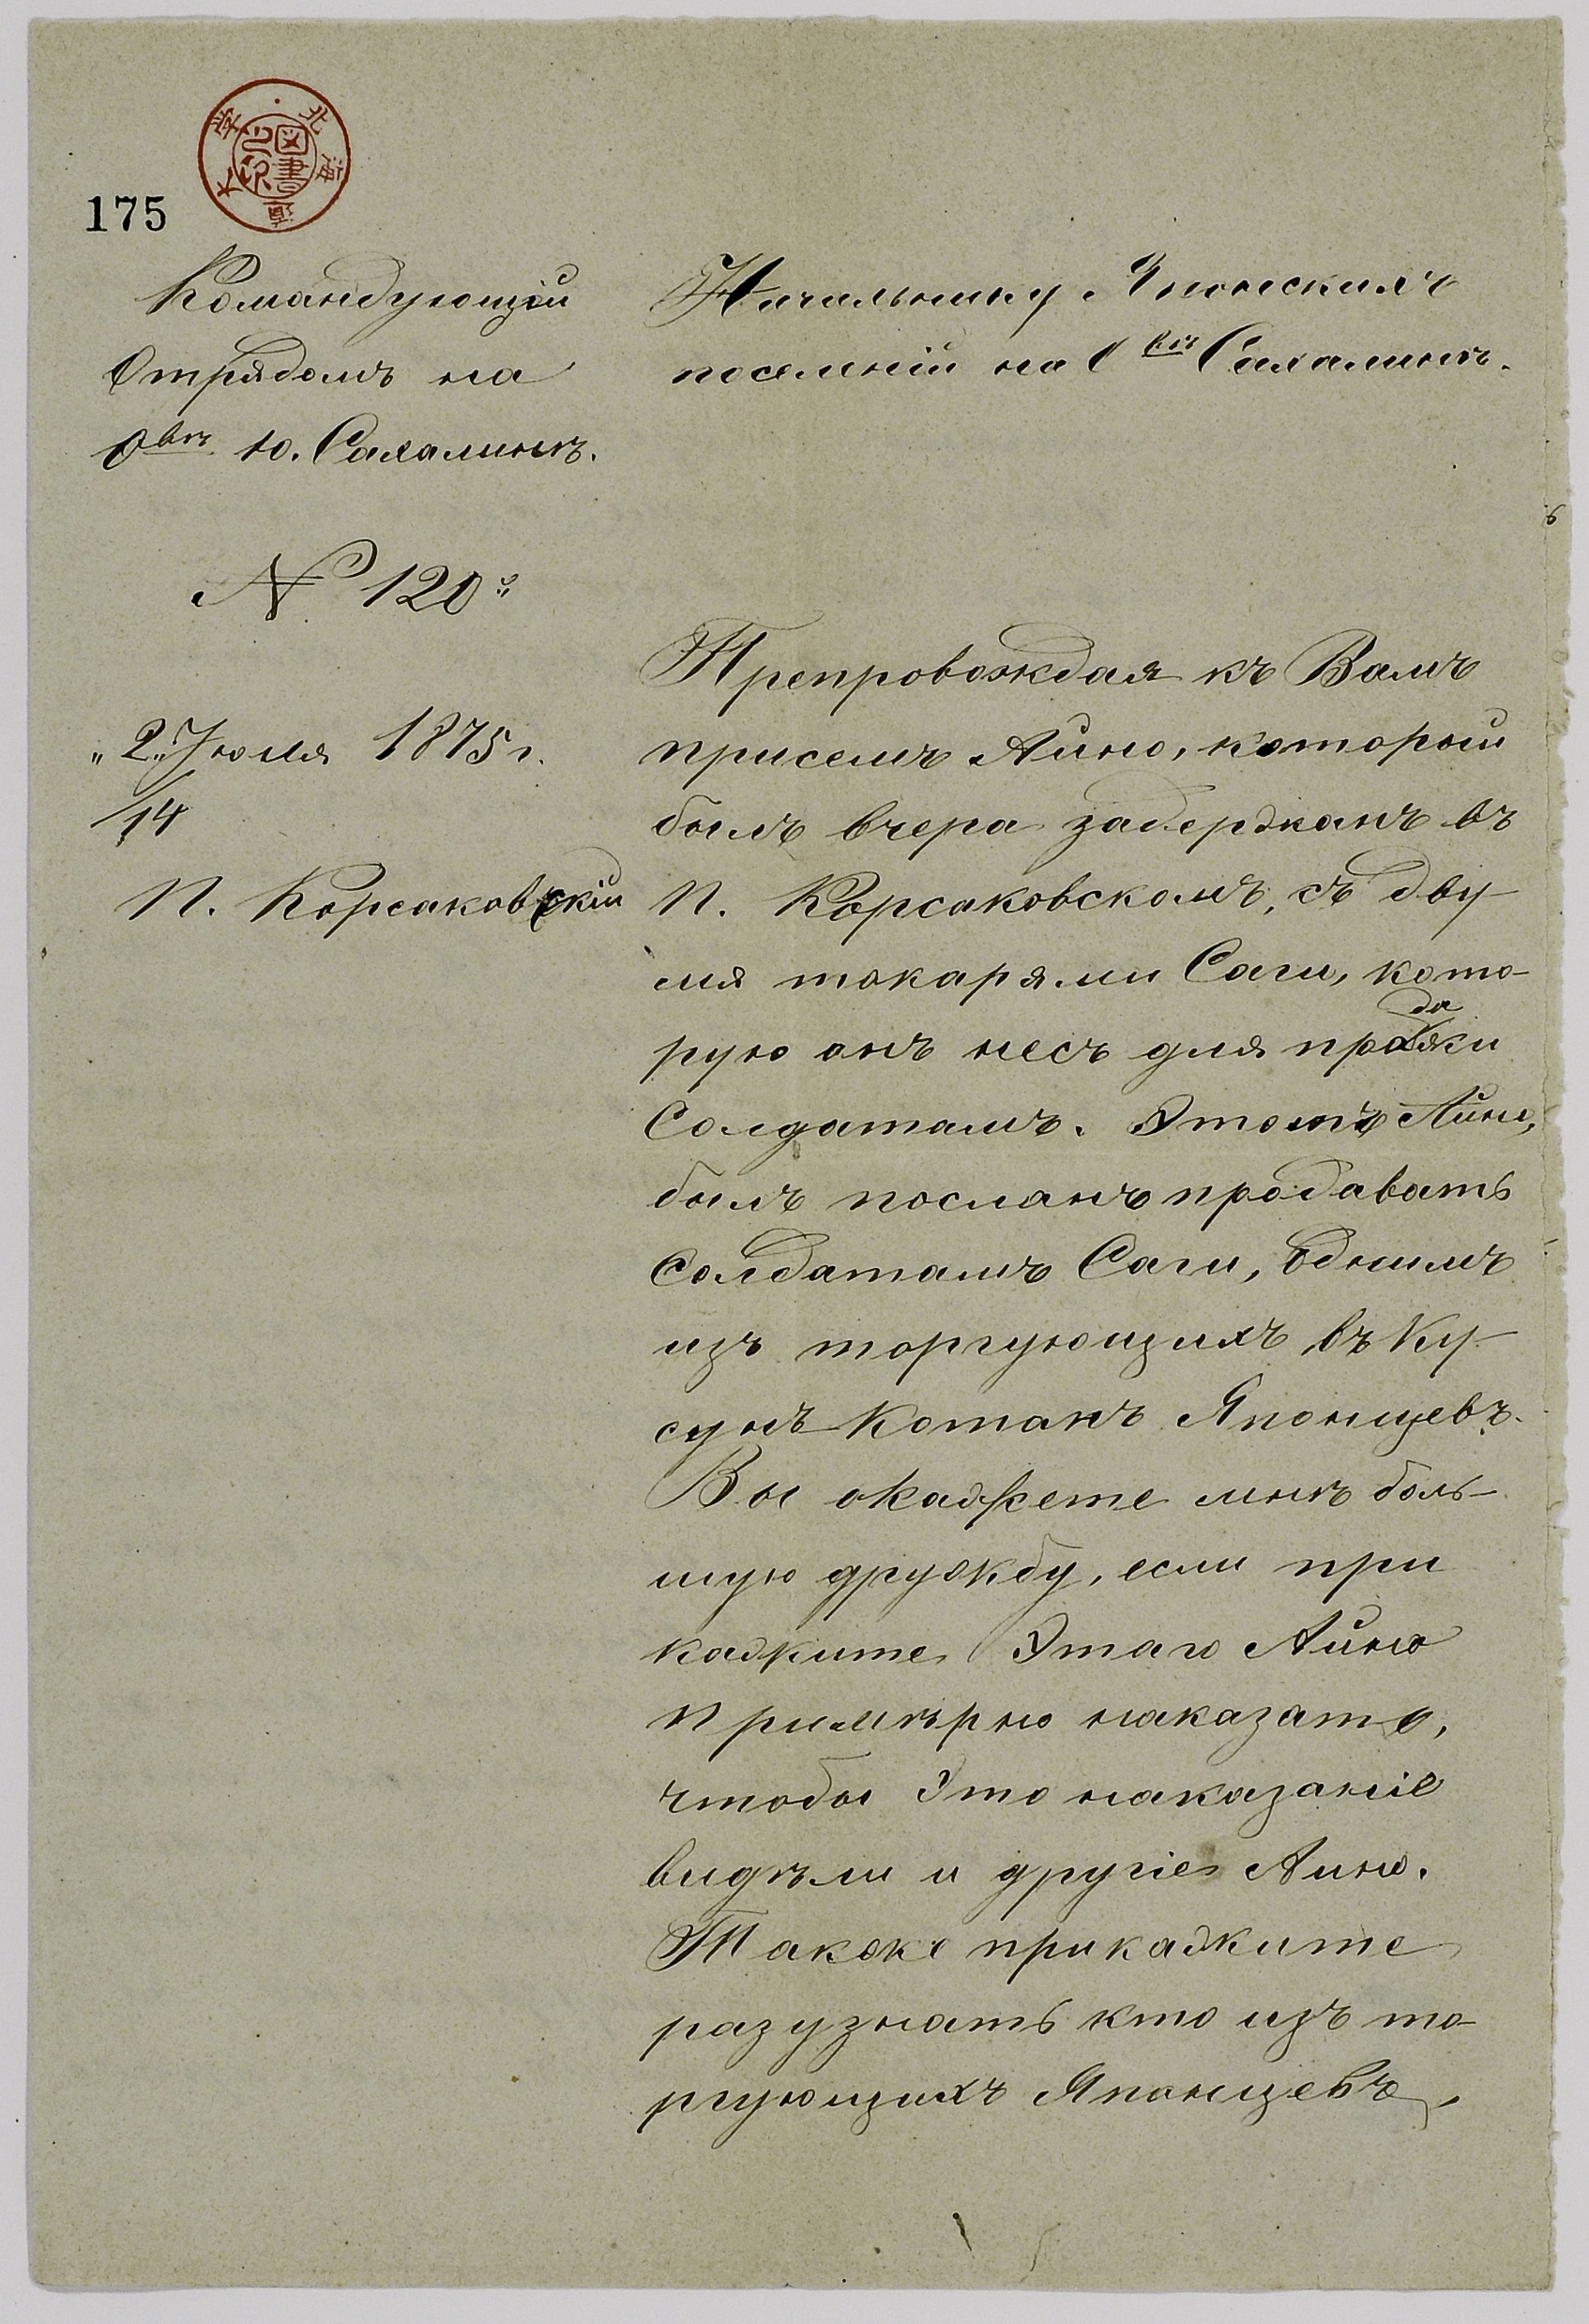 175
北海道大学
図書之印
Командующій
Отрядомъ на
О<sup>вѣ</sup> Ю. Сахалинѣ.
№ 120
„2„ Іюля 1875 г.
/14
П. Корсаковскій
Начальнику Японскихъ
поселній на О<sup>вѣ</sup> Сахалинѣ.
Препровождая къ Вамъ
присемъ Айно, которой
былъ вчера задержанъ въ
П. Корсаковскомъ, съ дву-
мя токарями Саги, кото-
рую онъ несъ для продажи
Солдатамъ. Этотъ Айно,
былъ посланъ продавать
Солдатамъ Саги, однимъ
изъ торгующихъ въ Ку-
сунъ Котанъ Японцевъ.
Вы окажете мнѣ боль-
шую дружбу, если при
кажите Этаго Айно
примѣрно наказать,
чтобы Это наказаніе
видѣли и другіе Айно.
Также прикажите
разузнать кто изъ то-
ргующихъ Японцевъ,